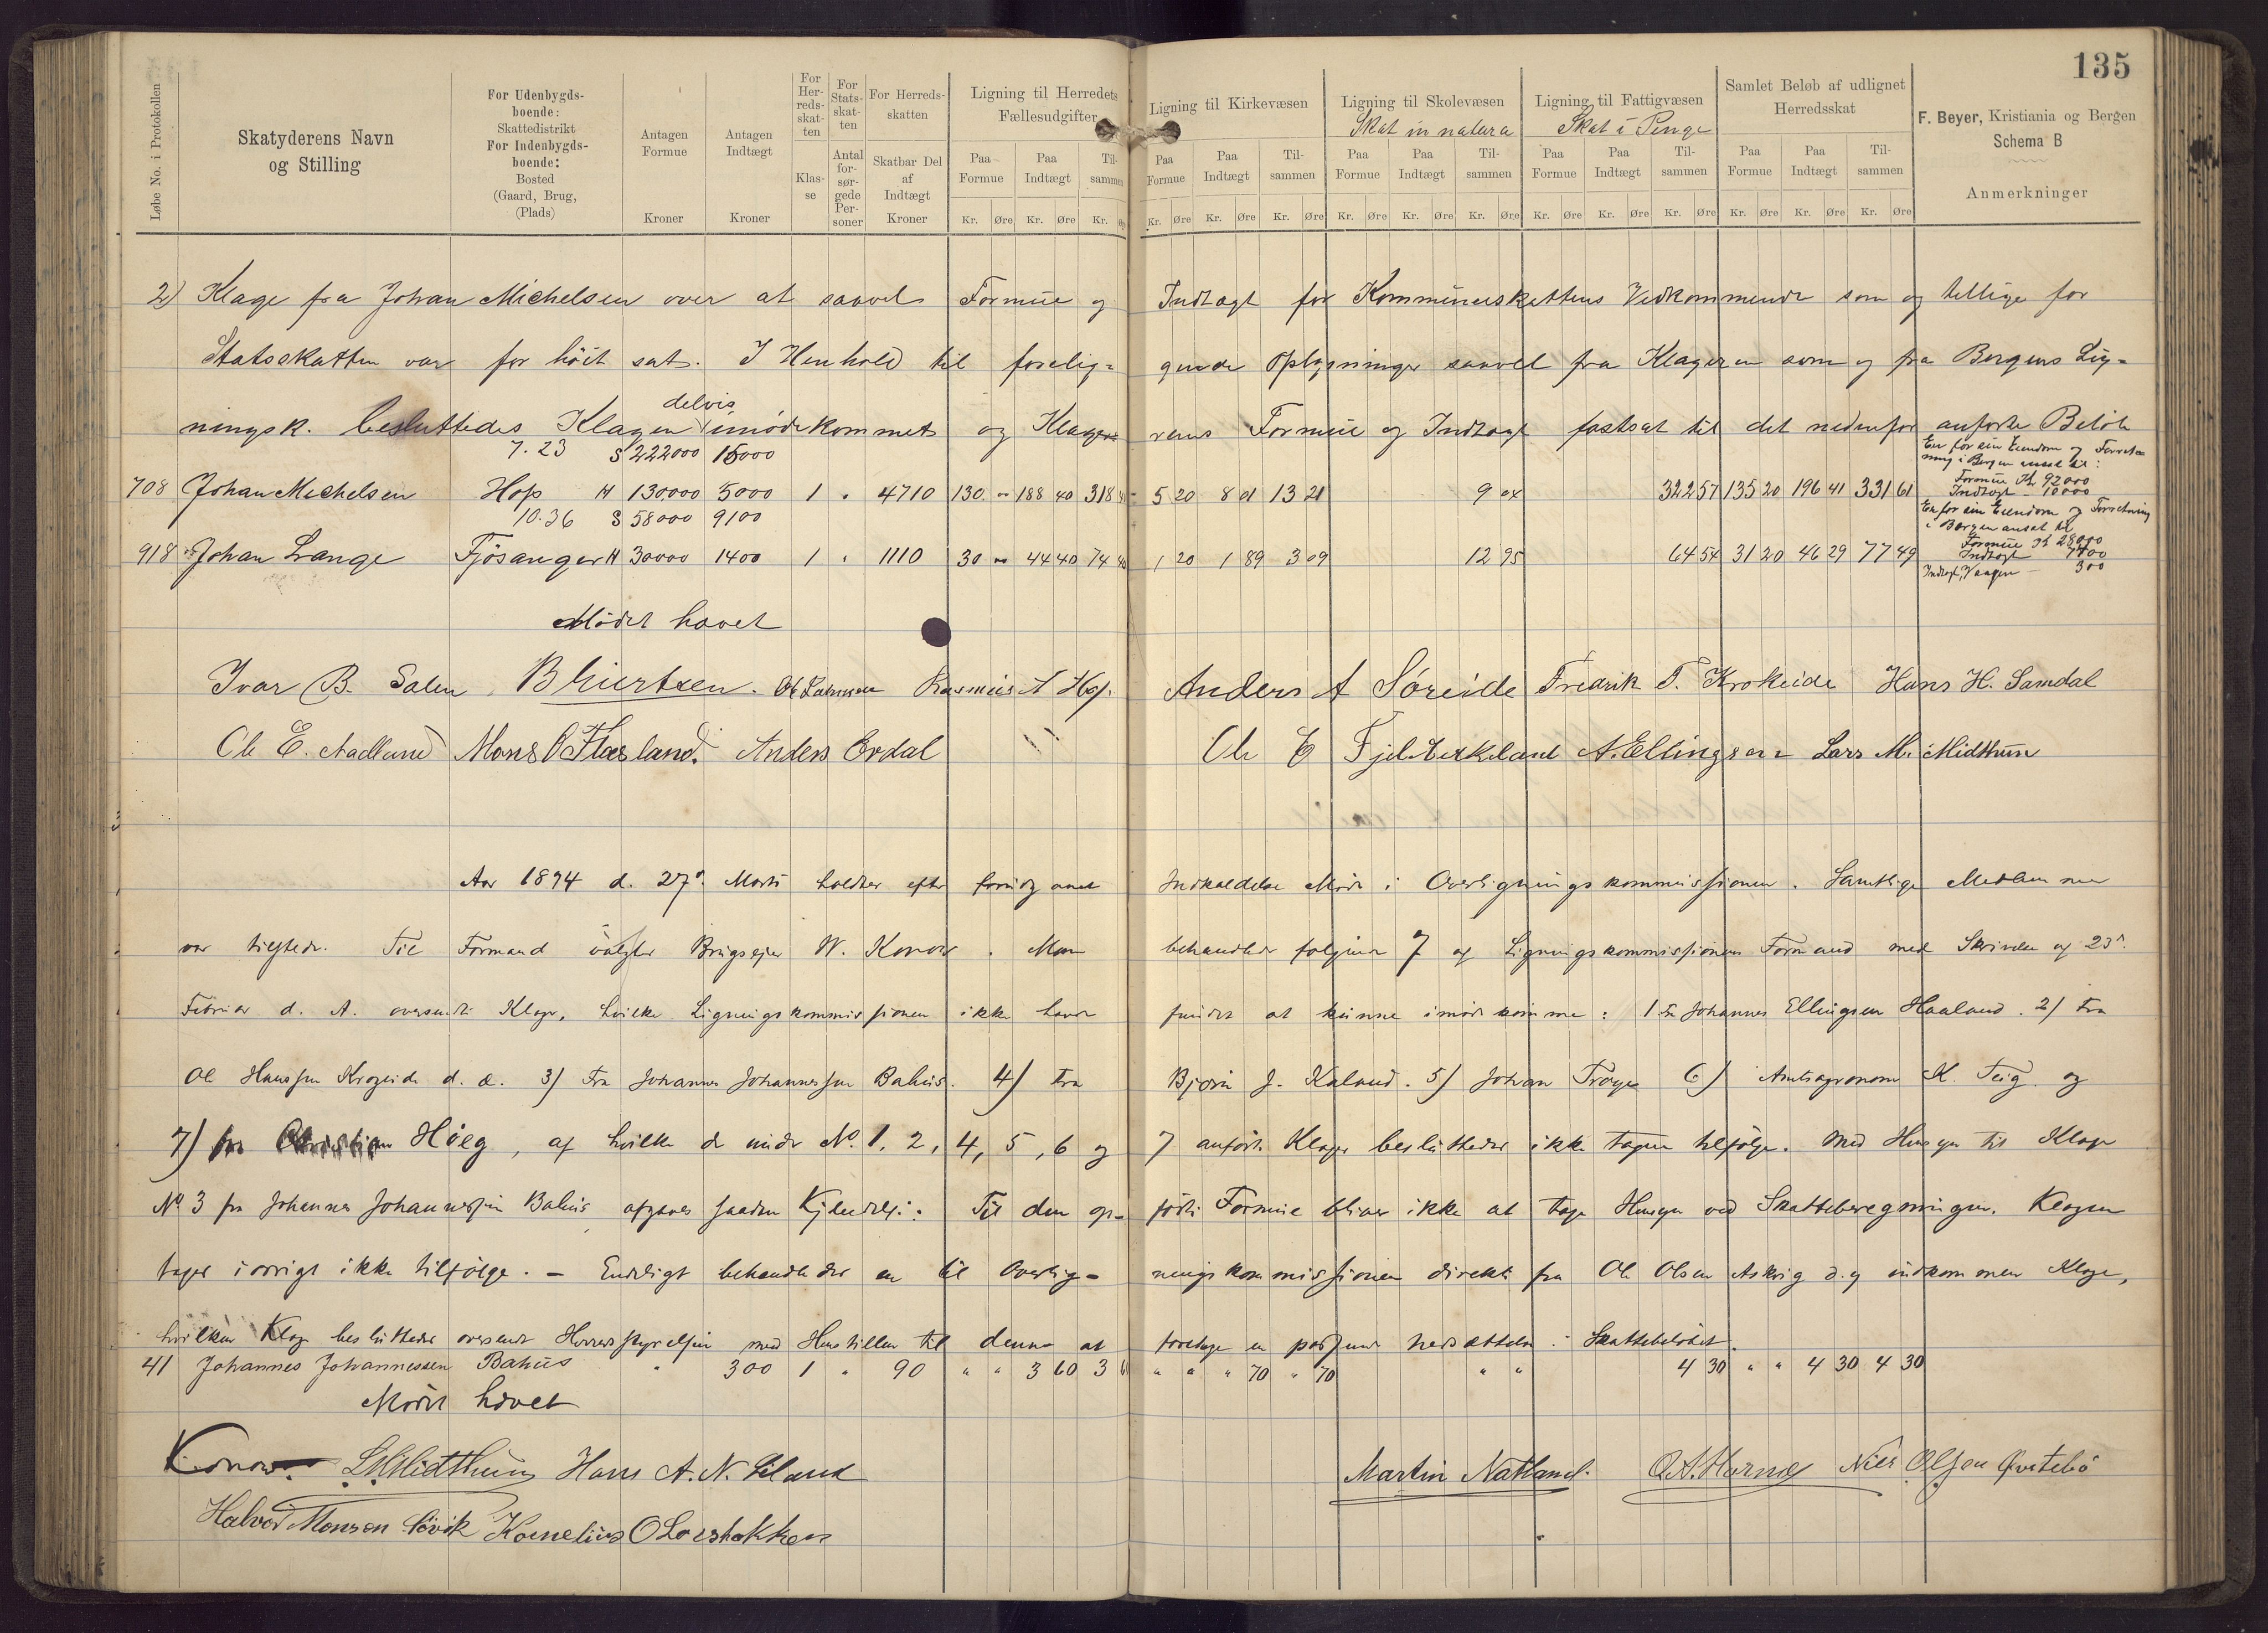 135
Løbe No. i Protokollen
Skatyderens Navn og Stilling
For Udenbygds-boende: Skattedistrikt For Indenbygds-boende: Bosted (Gaard, Brug, (Plads)
Antagen Formue Kroner
Antagen Indtægt Kroner
For Herreds-skatten Klas-se
For Stats-skat-ten Antal for-sør-gede Per-soner
For Herreds-skatten Skatbar Del af Indtægt Kroner
Ligning til Herredets Fællesudgifter Paa Formue Paa Indtægt Til-sammen Kr. Øre Kr. Øre Kr.
Ligning til Kirkevæsen Paa Formue Paa Indtægt Til-sammen Kr. Øre Kr. Øre Kr. Øre
Ligning til Skolevæsen Skat in natura Paa Formue Paa Indtægt Til-sammen Kr. Øre Kr. Øre Kr. Øre
Ligning til Fattigvæsen Skat i Penge Paa Formue Paa Indtægt Til-sammen Kr. Øre Kr. Øre Kr. Øre
Samlet Beløb af udlignet Herredsskat Paa Formue Paa Indtægt Til-sammen Kr. Øre Kr. Øre Kr. Øre
F. Beyer, Kristiania og Bergen
Schema B
Anmerkninger
2) Klage fra Johan Michelsen over at saavel Formue og Indtægt for Kommuneskattens Vedkommende som og tillige for
Statsskatten var for høit sat. I Henhold til forelig= gende Oplysninger saavel fra Klageren som og fra Bergens Lig=
delvis
ningsk. besluttedes Klagen imødekommet og Klage= rens Formue og Indtægt fastsat til det nedenfor anførte Beløb
7.23 S 222000 15000
708 Johan Michelsen Hop H 130000 5000 1 " 4710 130 " 188 40 318 5 20 8 01 13 21 9 322 57 135 20 196 41 331 61
En for sin Eiendom og Forret=
ning i Bergen ansat til:
Formue Kr 92000
Indtægt - 10000
10.36 S 58000 9100
918 Johan Lange Fjøsanger H 30000 1400 1 " 1110 30 " 44 40 74 1 20 1 89 3 09 12 95 64 54 31 20 46 29 77 49
En for sin Eiendom og Forretning
i Bergen ansat til
Formue Kr 28000
Indtægt 7400
Indtægt, Vaagen - 300
Mødet hævet
Ivar B. Salen Rasmus A Hop. Anders A Søreide Fredrik T. Krokeide Hans H. Samdal
Ole E. Nadland Mons O Flæsland. Anders Erdal Ole E Fjelbirkeland A. Ellingsen Lars M. Midthun
Aar 1894 d. 27de Marts holdtes efter forudgaaet Indkaldelse Møde i Overligningskommissionen. Samtlige Medlemmer
var tilstede. Til Formand valgtes Brugseier W. Konow. Man behandlede følgende 7 af Ligningskommissionens Formand med Skrivelse af 23de
Februar d. A. oversendte Klager, hvilke Ligningskommissionen ikke havde fundet at kunne imødekomme: 1 fra Johannes Ellingsen Haaland. 2) Fra
Ole Hanssen Krogeide d. æ. 3) Fra Johannes Johannessen Bahus. 4) Fra Bjørn J. Kaland. 5) Johan Troye 6) Amtsagronom K. Teig og
7) fra Christian Høeg, af hvilke de under No. 1, 2, 4, 5, 6 og 7 anførte Klager besluttedes ikke tagen tilfølge. Med Hensyn til Klage
No 3 fra Johannes Johannessen Bahus afgaves saadan Kjendelse: Til den op= førte Formue bliver ikke at tage Hensyn ved Skatteberegningen. Klagen
tages iøvrigt ikke tilfølge. – Endeligt behandledes en til Overlig= ningskommissionen direkte fra Ole Olsen Askvig d. y indkommen Klage,
hvilken Klage besluttedes oversendt Herredsstyrelsen med Henstillen til denne at foretage en passende Nedsættelse i Skattebeløbet.
41 Johannes Johannessen Bahus " 300 1 " 90 " " 3 60 3 " " " 70 " 70 " " 4 30 " " 4 30 4 30
Mødet hævet
Konow. L. Midthun Hans A. N. Martin Natland. Nils Olsen Øvstebø
Halvor Monsen Søvik Kornelius O